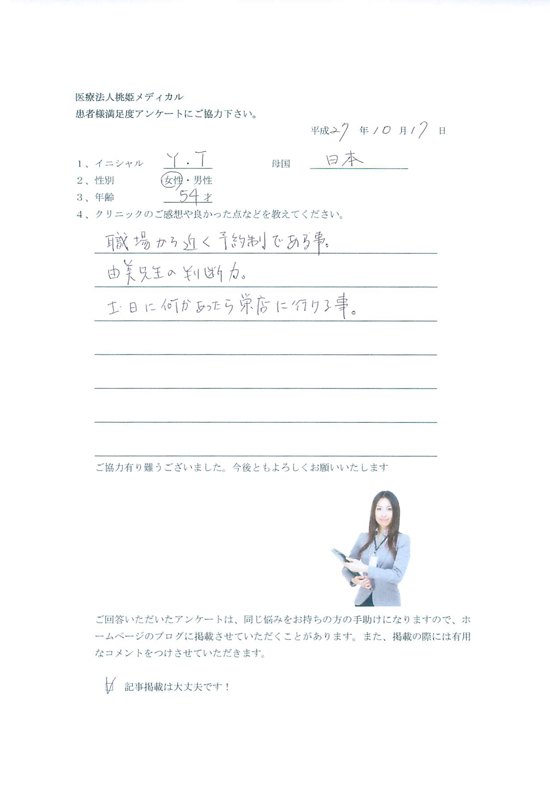 医療法人桃姫メディカル
患者様満足度アンケートにご協力下さい。
平成27年10月17日
1、イニシャル Y.T 母国 日本
2、性別 女性・男性
3、年齢 54才
4、クリニックのご感想や良かった点などを教えてください。
職場から近く予約制である事。
由美先生の判断力。
土・日に何かあったら栄店に行ける事。
ご協力有り難うございました。今後ともよろしくお願いいたします
ご回答いただいたアンケートは、同じ悩みをお持ちの方の手助けになりますので、ホ
ームページのブログに掲載させていただくことがあります。また、掲載の際には有用
なコメントをつけさせていただきます。
記事掲載は大丈夫です！